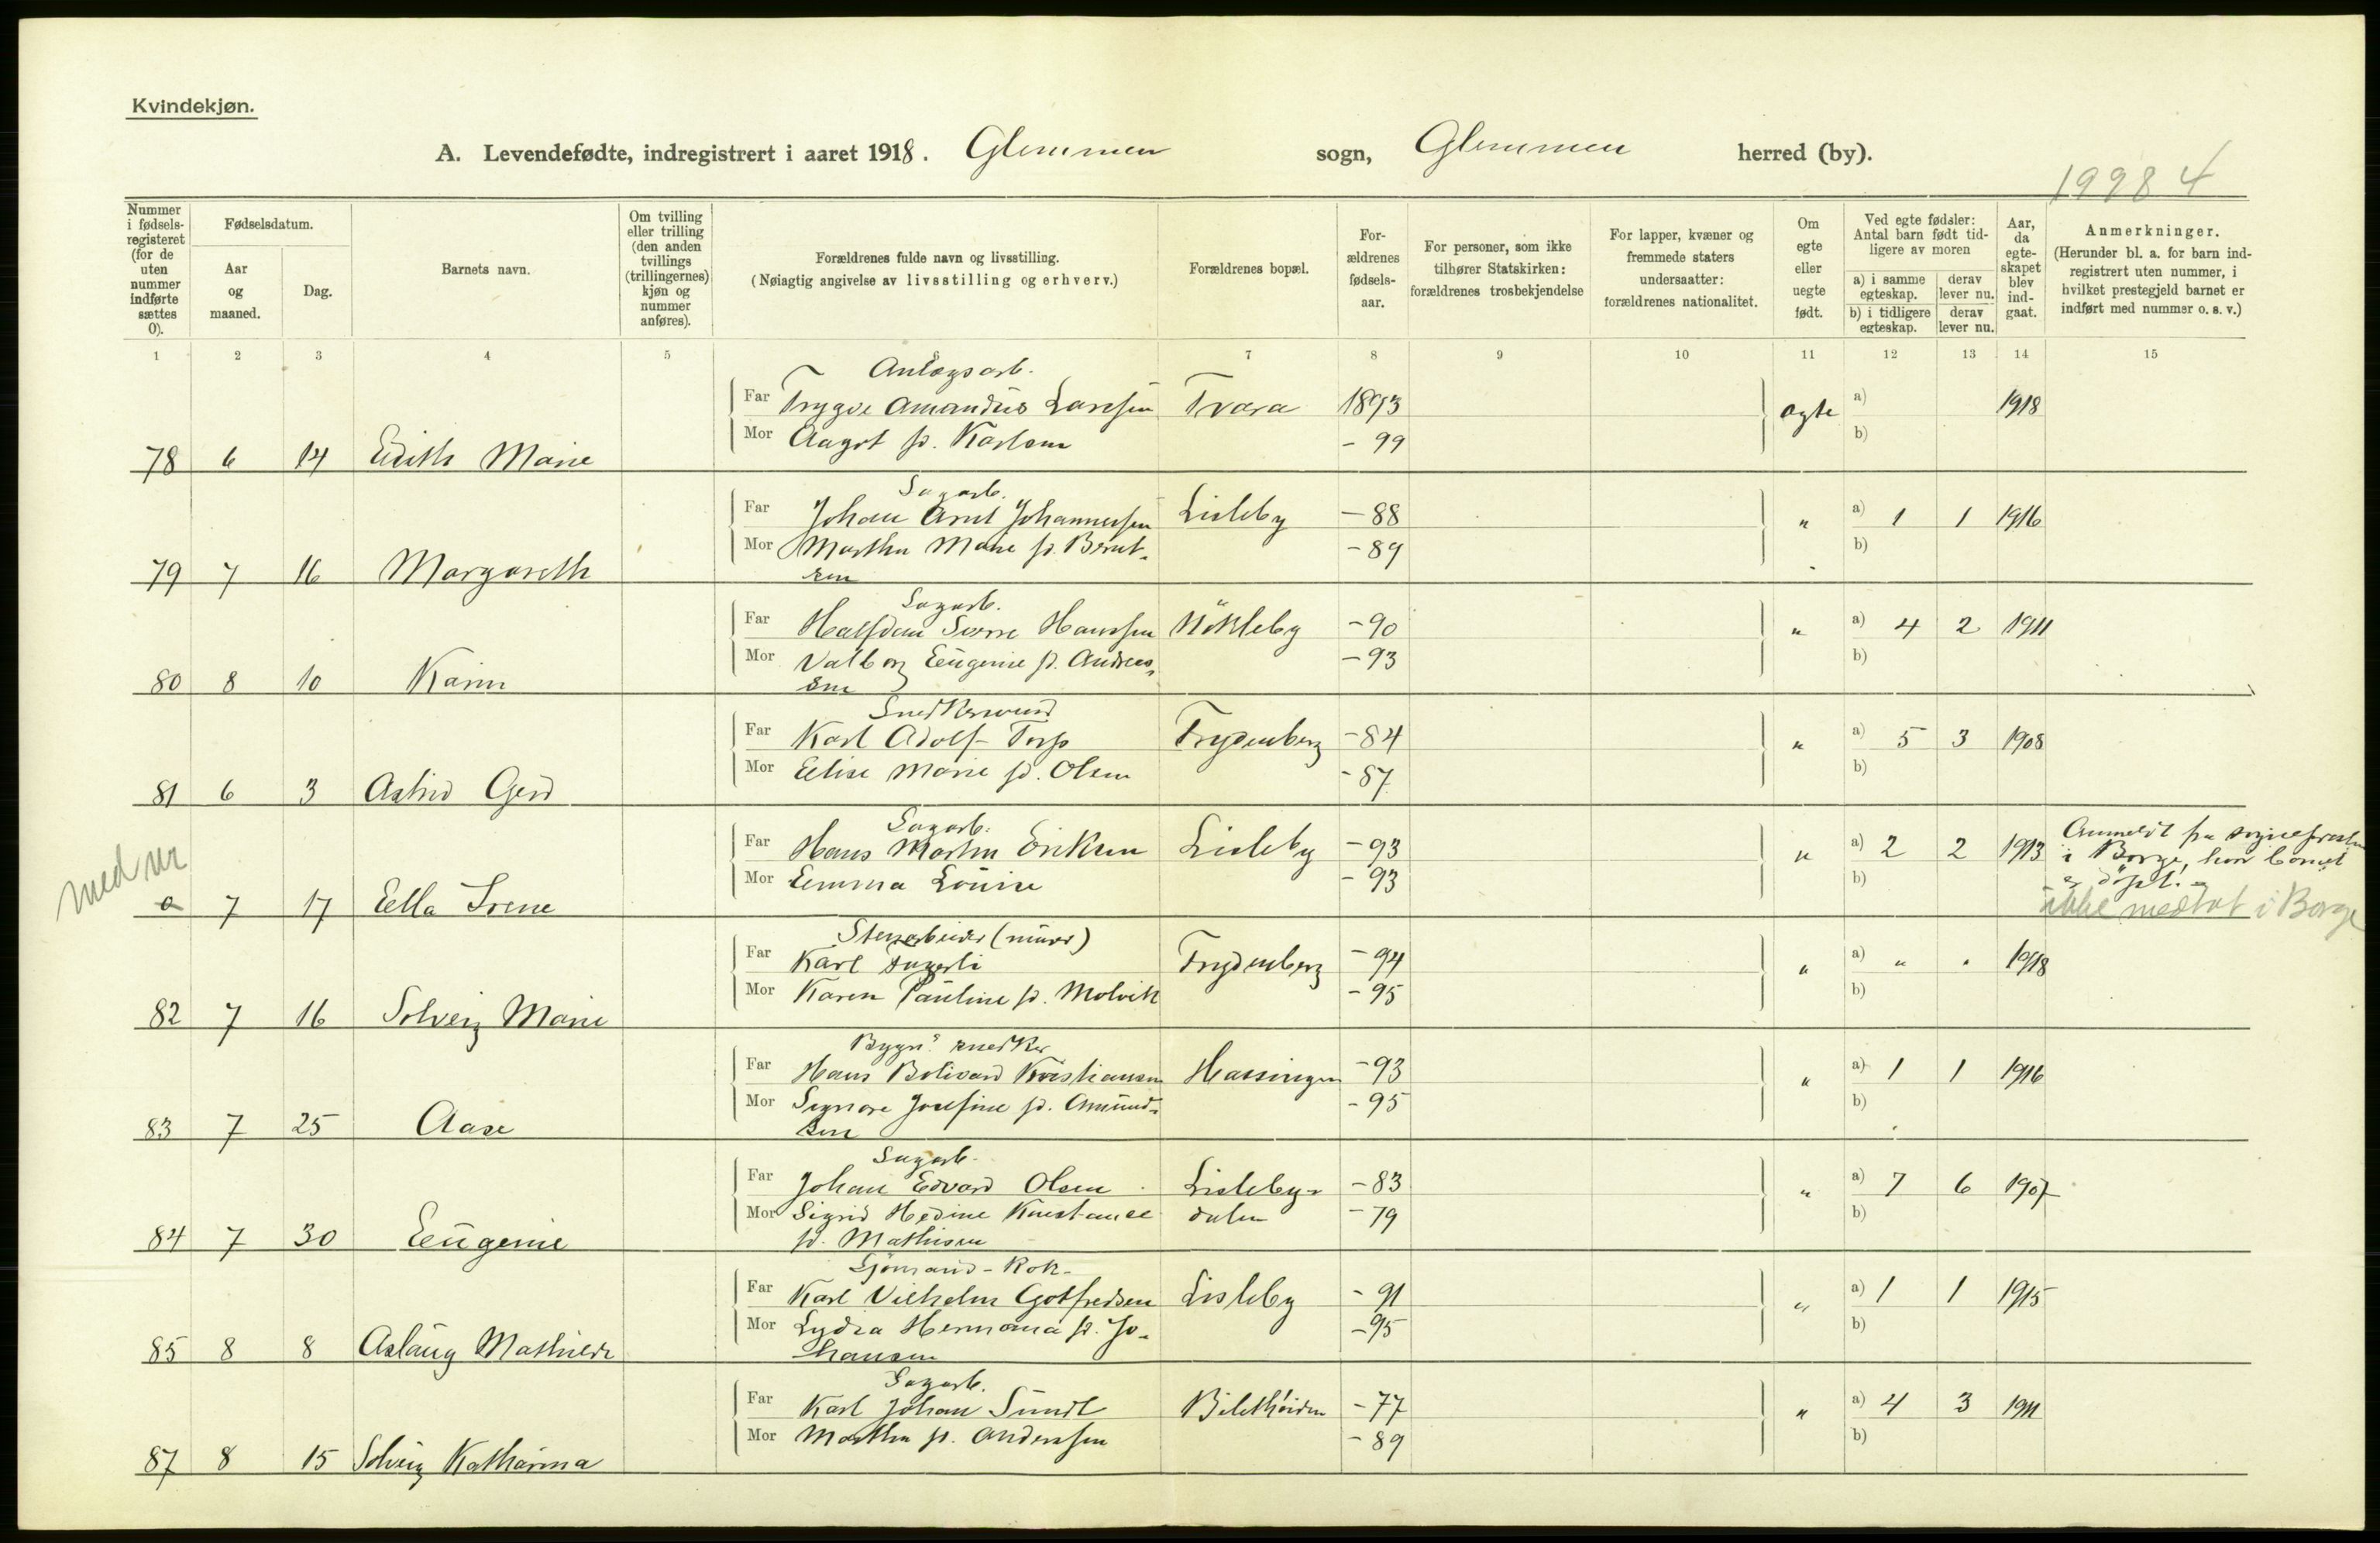 Kvindekjøn.
A. Levendefødte, indregistrert i aaret 1918. Glemmen sogn, Glemmen herred (by).
19984
Nummer i fødselsregisteret (for de uten nummer indførte sættes 0).
Fødselsdatum.
Aar og maaned.
Dag.
Barnets navn.
Om tvilling eller trilling (den anden tvillings (trillingernes) kjøn og nummer anføres).
Forældrenes fulde navn og livsstilling.
(Nøiagtig angivelse av livsstilling og erhverv.)
Forældrenes bopæl.
Forældrenes fødselsaar.
For personer, som ikke tilhører Statskirken: forældrenes trosbekjendelse
For lapper, kvæner og fremmede staters undersaatter: forældrenes nationalitet.
Om egte eller uegte født.
Ved egte fødsler: Antal barn født tidligere av moren
a) i samme egteskap. derav lever nu.
b) i tidligere egteskap. derav lever nu.
Aar, da egteskapet blev indgaat.
Anmerkninger.
(Herunder bl. a. for barn indregistrert uten nummer, i hvilket prestegjeld barnet er indført med nummer o. s. v.)
1 2 3 4 5 6 7 8 9 10 11 12 13 14 15
Anlægsarb.
Far Trygve Amandus Larsen Trara 1893 ægte a) 1918
Mor Aagot f. Karlsen - 99 b)
78 6 14 Edith Marie
Sagarb.
Far Johan Arnt Johannessen Lisleby - 88 " a) 1 1 1916
Mor Martha Marie f. Bernt- - 89 b)
79 7 16 Margareth sen
Sagarb.
Far Halfdan Sverre Hanssen Nökleby - 90 " a) 4 2 1911
Mor Valborg Eugenie f. Andreas- - 93 b)
80 8 10 Karin sen
Snedkersvend
Far Karl Adolf Torp Frydenberg - 84 " a) 5 3 1908
Mor Elise Marie f. Olsen - 87 b)
81 6 3 Astrid Gerd
Sagarb.
Far Hans Martin Eriksen Lisleby - 93 " a) 2 2 1913 Anmeldt fra sognepresten
i Borge, hvor barnet
er döpt.
Mor Emma Louise - 93 b)
med nr
0 7 17 Ella Irene ikke medtat i Borge
Stenarbeider (murer)
Far Karl Frydenberg - 94 " a) " " 1918
Mor Karen Pauline f. Molvik - 95 b)
82 7 16 Solveig Marie
Bygn. snedker
Far Hans Bolivard Kristiansen Hassingen - 93 " a) 1 1 1916
Mor Signora Josefine f. Amund- - 95 b)
83 7 25 Aase sen
Sagarb.
Far Johan Edvard Olsen Lisleby- - 83 " a) 7 6 1907
Mor Sigrid Hedine Konstance dalen - 79 b)
84 7 30 Eugenie f. Mathisen
Sjömand - Kok -
Far Karl Vilhelm Gotfredsen Lisleby - 91 " a) 1 1 1915
Mor Lydia Hermana f. Jo- - 95 b)
85 8 8 Aslaug Mathilde hansen
Sagarb.
Far Karl Johan Sundt - 77 " a) 4 3 1911
Mor Martha f. Anderssen - 89 b)
87 8 15 Solveig Katharina